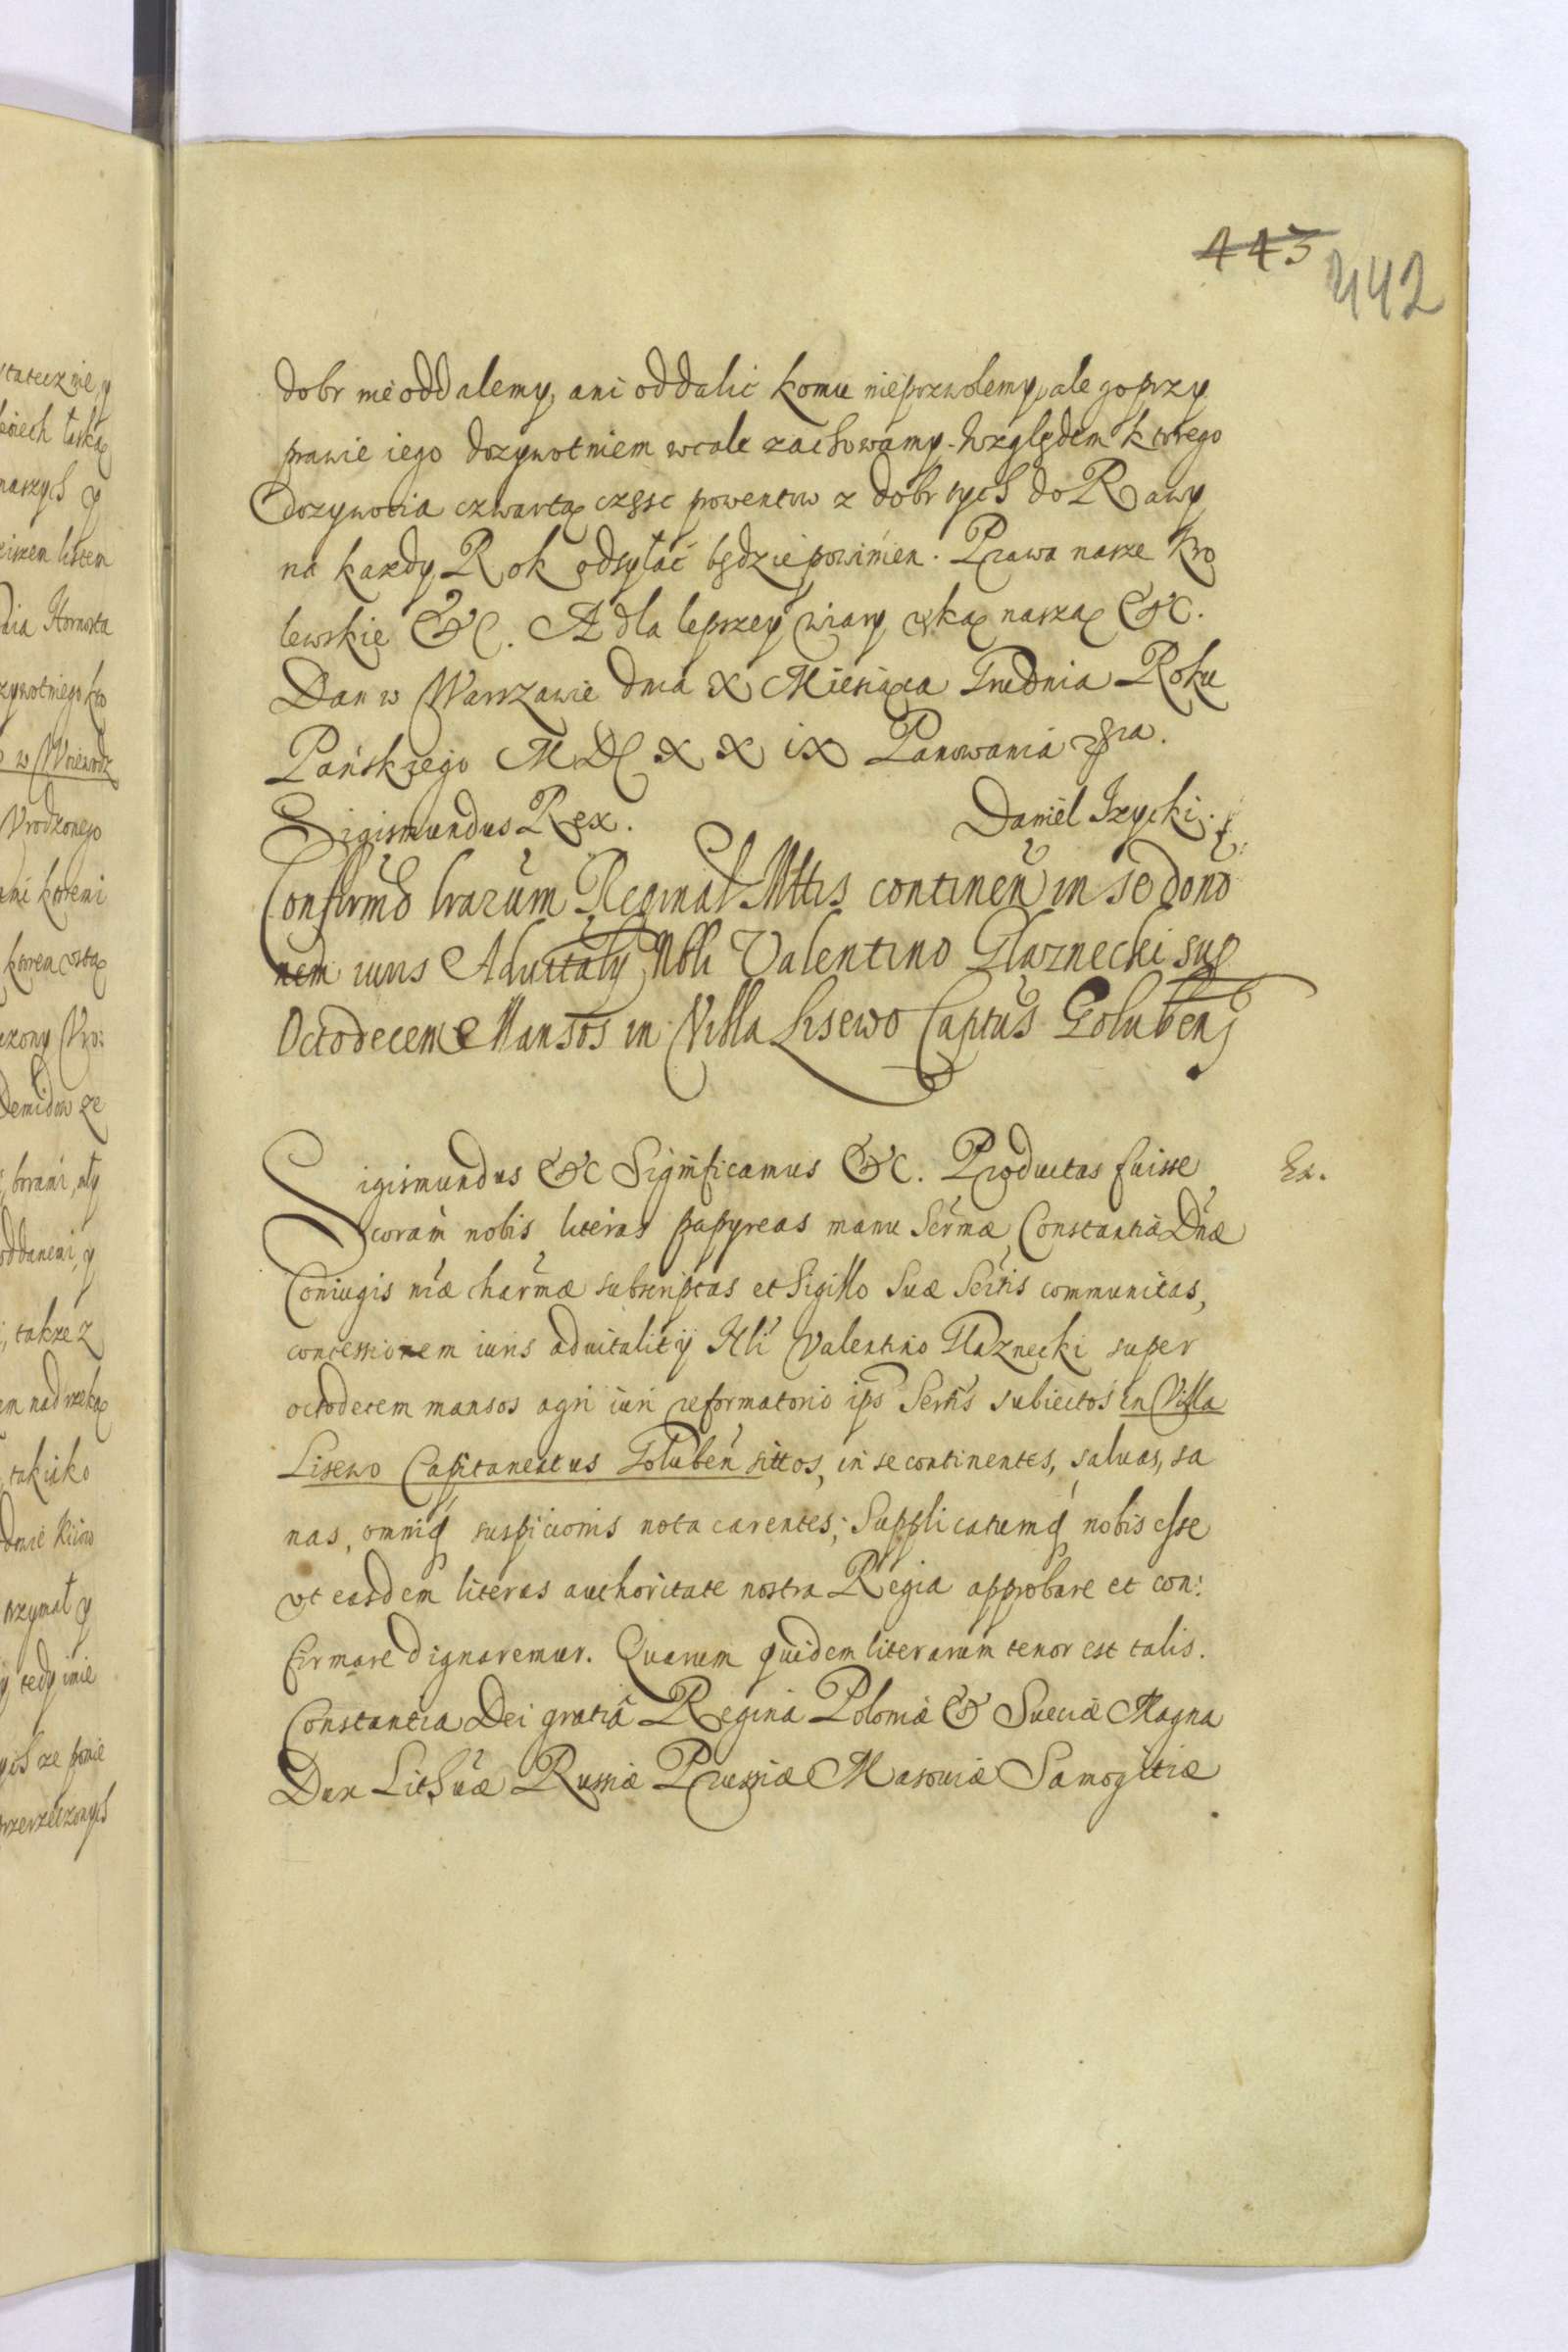 443 442
dobr nie oddalemy, ani oddalić komu niepozwolemy, ale go przy
prawie iego dozywotniem wcale zachowamy. Względem ktorego
dozywocia czwartą częsc prowentow z dobr tych do Rawy
na kazdy Rok odsyłać będzie powinien. Prawa nasze kro
lewskie &c. A dla lepszey wiary ręką naszą &c.
Dan w Warszawie dnia X Miesiąca Grudnia Roku
Pańskiego MDCXXIX Panowania
Sigismundus Rex. Daniel Izycki.
Confirmõ lrarum Reginal Mttis continen in se dono
nem iuris Aduitaly Nbli Valentino Glaznecki sup
Octodecem Mansos in Villa Lisewo Captus Golubenş
Sigismundus &c Significamus &c. Productas fuisse Ex.
coram nobis literas papyreas manu Sermæ Constantiæ Dnæ
Coniugis nræ charmæ subscriptas et Sigillo Suæ Sertis communitas,
concessionem iuris aduitalitÿ Nli Valentino Glaznecki super
octodecem mansos agri iuri reformatorio ips Sertis subiectos in Villa
Lisewo Capitaneatus Goluben sittos, in se continentes, saluas, sa
nas, omniq suspicionis nota carentes; Supplicatumq nobis esse
vt easdem literas authoritate nostra Regia approbare et con:
firmare dignaremur. Quarum quidem literarum tenor est talis.
Constantia Dei gratia Regina Poloniæ & Sueciæ Magna
Dux Lithuæ Russiæ Prussiæ Masouiæ Samogitiæ